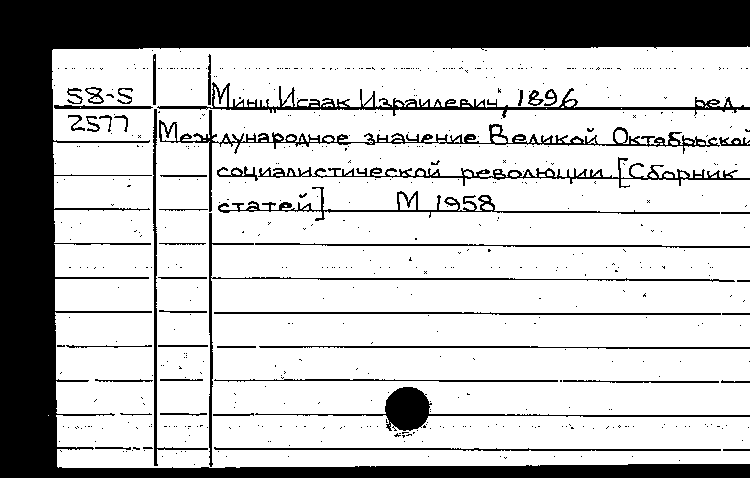 58-5 Минц, Исаак Израилевич, 1896 ред.
2577 Международное значение Великой Октябрьской
социалистической революции [Сборник
статей]. М, 1958